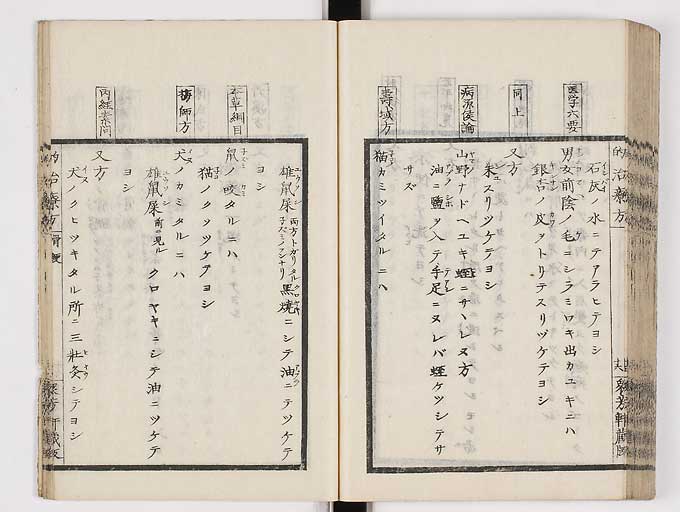 石灰ノ水ニテアラヒテヨシ
醫学六要
男女前陰ノ毛ニシラミワキ出カユキニハ
銀杏ノ皮ヲトリテスリツケテヨシ
同上
又方
朱スリツケテヨシ
病源候論
山野ナドヘユキ蛭ニサヽレヌ方
油ニ鹽ヲ入テ手足ニヌレバ蛭ケツシテサ
サズ
壽域方
猫カミツイタルニハ
雄鼠屎 両方トガリタル
黒焼ニシテ油ニテツケテ
ヨシ
本草綱目
鼠ノ咬タルニハ
猫ノクソツケテヨシ
梅師方
犬ノカミタルニハ
雄鼠屎 前ニ見ル クロヤキニシテ油ニツケテ
ヨシ
内經素問
又方
犬ノクヒツキタル所ニ三壯灸シテヨシ